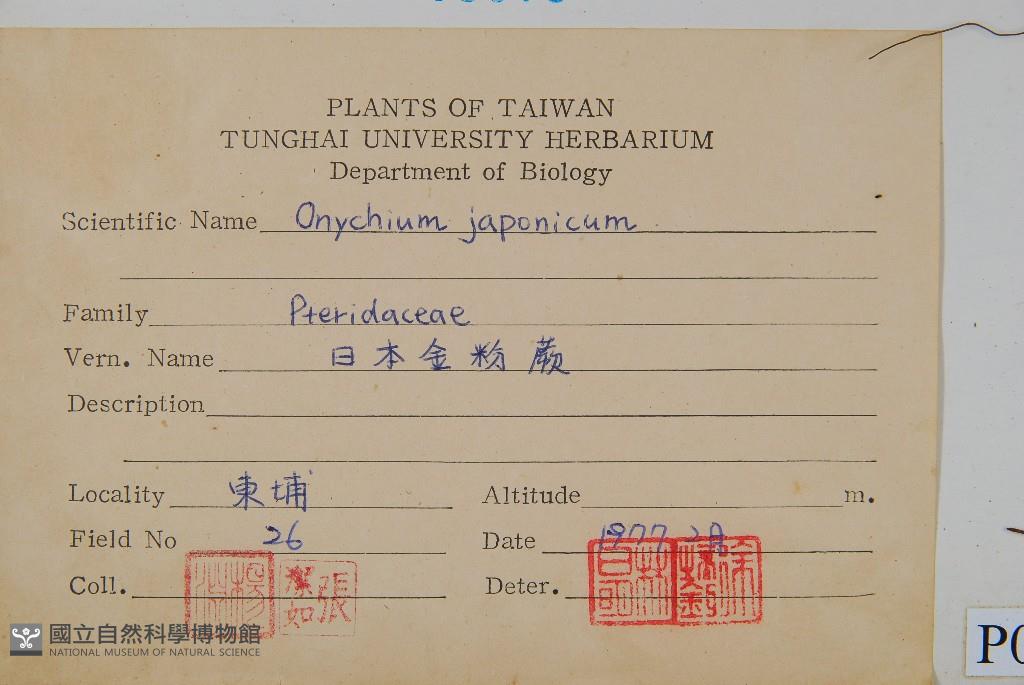 PLANTS OF TAIWAN
TUNGHAI UNIVERSITY HERBARIUM
Department of Biology
Scientific Name Onychium japonicum
Family Pteridaceae
Vern. Name 日本金粉蕨
Description
Locality 東埔 Altitude m.
Field No 26 Date 1977 2月
Coll. 楊 張潔如 Deter. 徐 林
國立自然科學博物館
NATIONAL MUSEUM OF NATURAL SCIENCE
P0